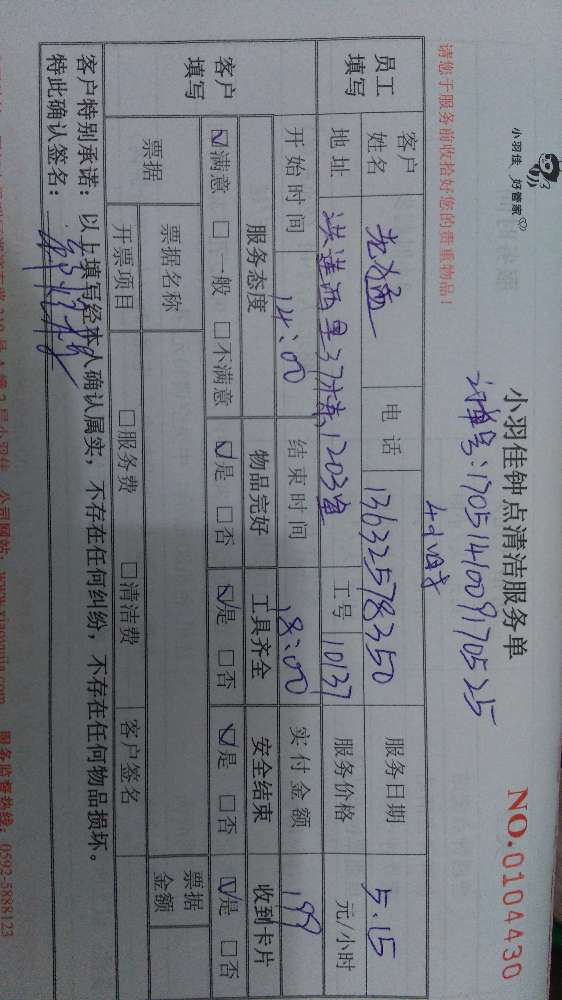 小羽佳 好管家
小羽佳钟点清洁服务单
NO.0104430
订单号:170514009170525
请您于服务前收拾好您的贵重物品!
4小时
员工填写
客户姓名
电话 13632578350
服务日期 5.15
地址 洪莲西里37栋1203室
工号 10137
服务价格 元/小时
客户填写
开始时间 14:00
结束时间 18:00
实付金额 199
服务态度 物品完好 工具齐全 安全结束 收到卡片
☑满意 □一般 □不满意 ☑是 □否 ☑是 □否 ☑是 □否 ☑是 □否
票据
票据名称
票据金额
开票项目 □服务费 □清洁费 客户签名
客户特别承诺:以上填写经本人确认属实,不存在任何纠纷,不存在任何物品损坏。
特此确认签名:
服务监督热线:0592-5888123